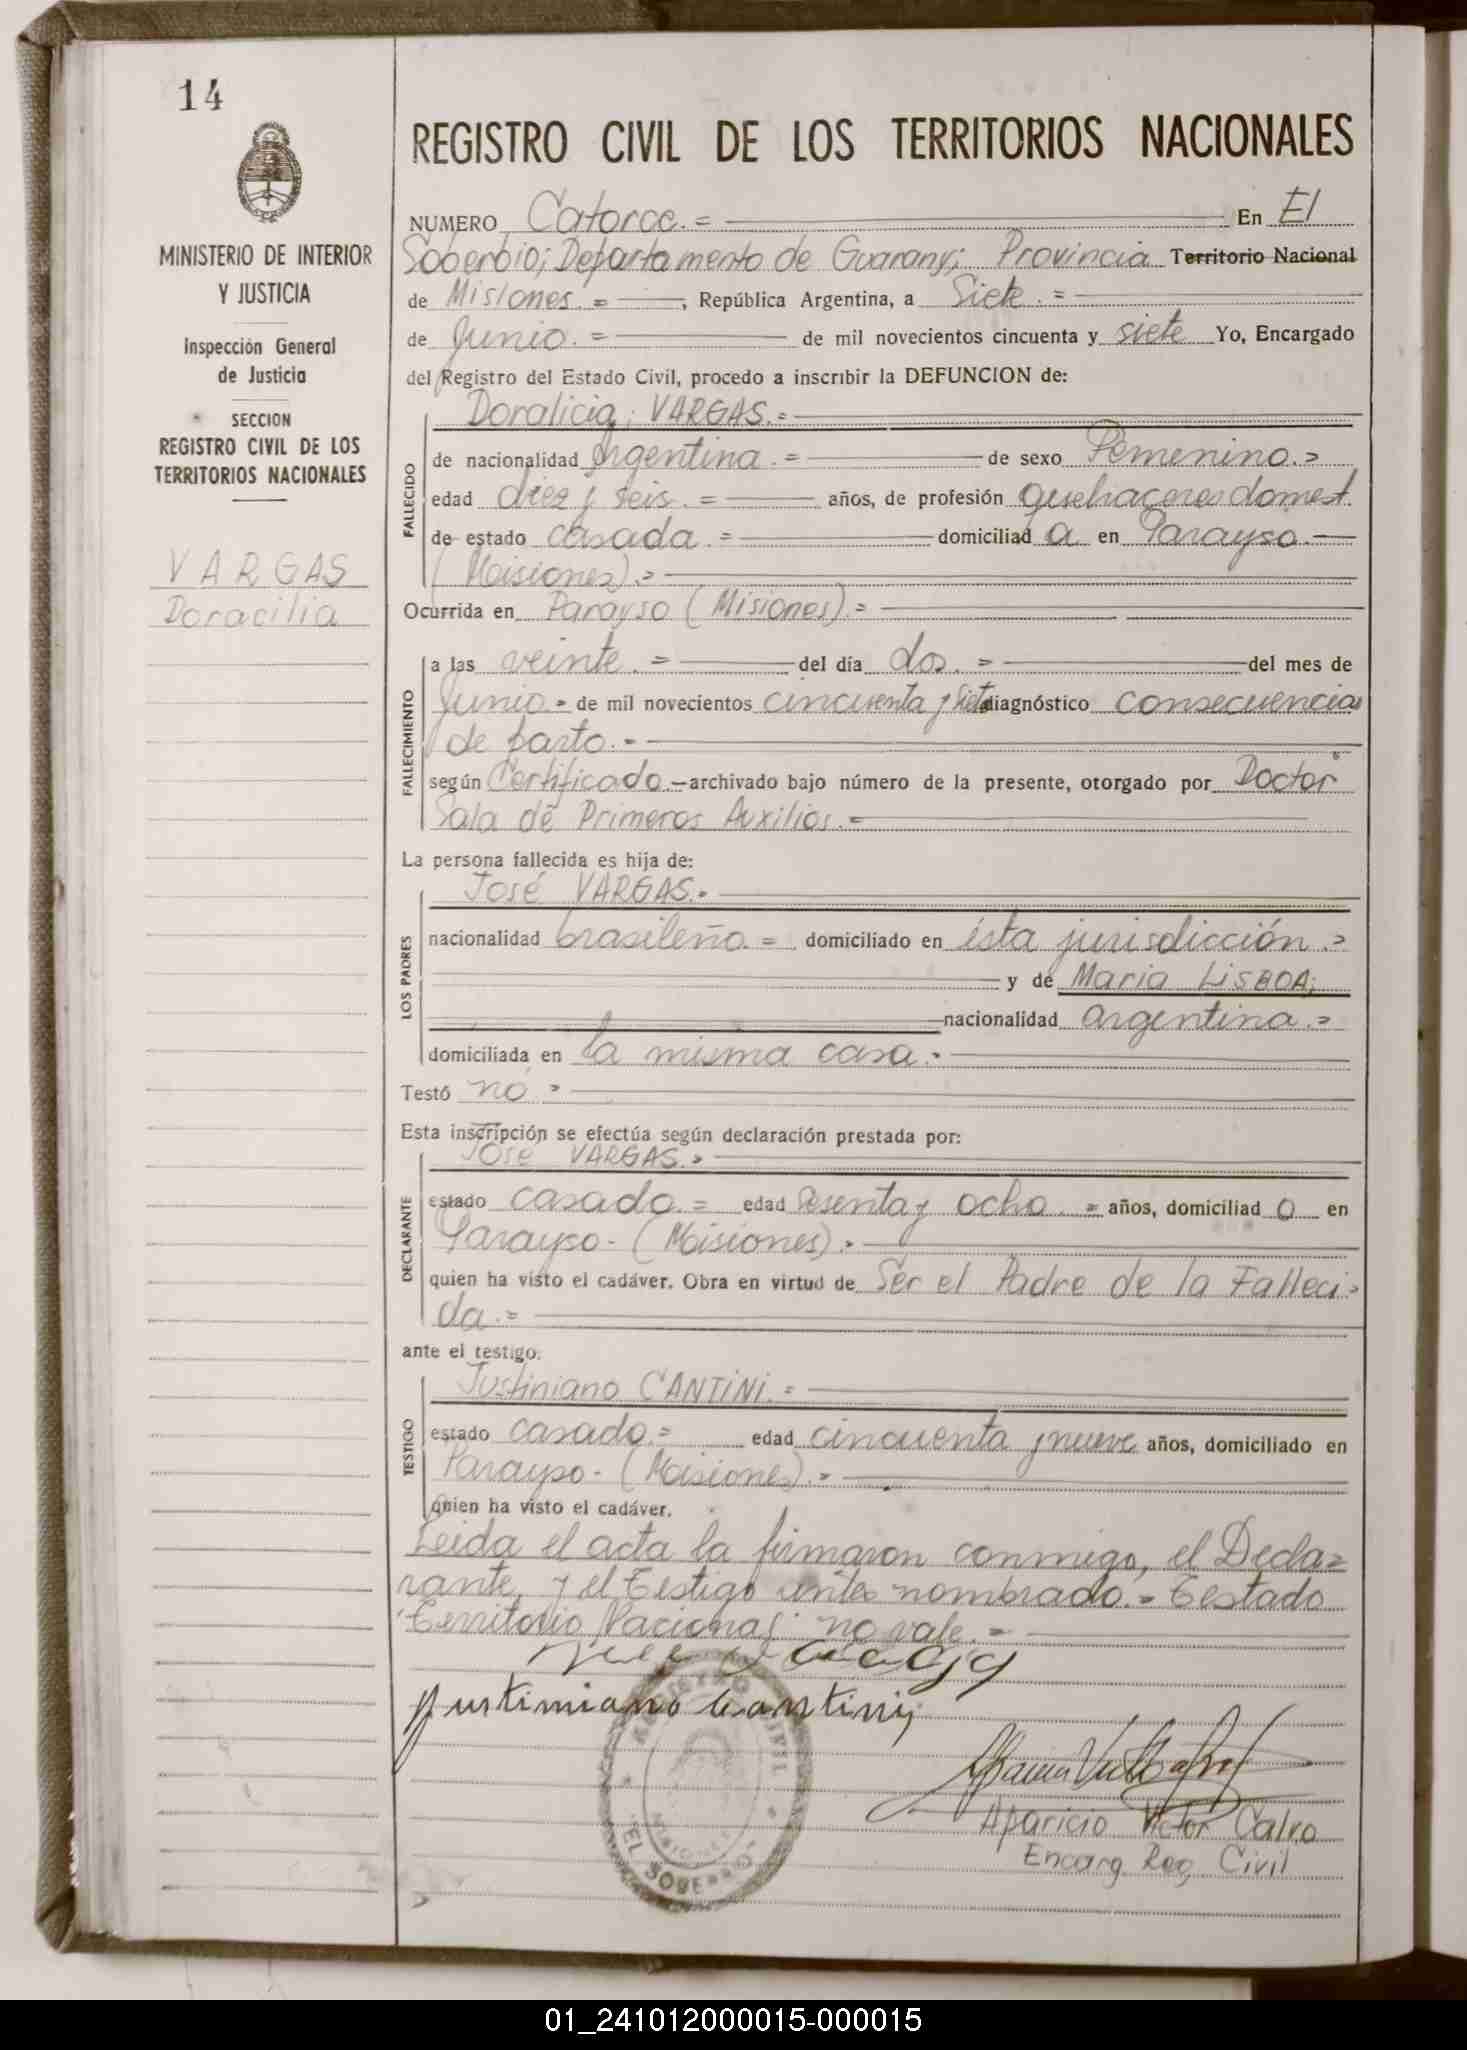 14
MINISTERIO DE INTERIOR
Y JUSTICIA
Inspección General
de Justicia
SECCION
REGISTRO CIVIL DE LOS
TERRITORIOS NACIONALES
VARGAS
Doracilia
REGISTRO CIVIL DE LOS TERRITORIOS NACIONALES
NUMERO Catorce.= En El
Soberbio; Departamento de Guarany; Provincia Territorio Nacional
de Misiones.= , República Argentina, a Siete.=
de Junio.= de mil novecientos cincuenta y siete Yo, Encargado
del Registro del Estado Civil, procedo a inscribir la DEFUNCION de:
FALLECIDO
Doralicia; VARGAS.=
de nacionalidad Argentina.= de sexo Femenino.=
edad diez y seis.= años, de profesión quehaceres domest.
de estado casada.= domiciliad a en Parayso.
(Misiones).=
Ocurrida en Parayso (Misiones).=
FALLECIMIENTO
a las veinte.= del día dos.= del mes de
Junio.= de mil novecientos cincuenta y siete diagnóstico consecuencia
de parto.-
según Certificado.- archivado bajo número de la presente, otorgado por Doctor
Sala de Primeros Auxilios.=
La persona fallecida es hija de:
LOS PADRES
José VARGAS.-
nacionalidad brasileño.= domiciliado en ésta jurisdicción.=
y de Maria LISBOA;
nacionalidad argentina.=
domiciliada en la misma casa.-
Testó no.=
Esta inscripción se efectúa según declaración prestada por:
DECLARANTE
José VARGAS.=
estado casado.= edad sesenta y ocho.= años, domiciliad o en
Parayso- (Misiones).-
quien ha visto el cadáver. Obra en virtud de Ser el Padre de la Falleci=
da.=
ante el testigo:
TESTIGO
Justiniano CANTINI.=
estado casado.= edad cincuenta y nueve años, domiciliado en
Parayso- (Misiones).-
quien ha visto el cadáver.
Leida el acta la firmaron conmigo, el Decla=
rante, y el Testigo antes nombrado.- Testado
"Territorio Nacional" no vale.=
Justiniano Cantini
REGISTRO CIVIL
MISIONES
"EL SOBERBIO"
Aparicio Victor Calvo
Encarg Reg Civil
01_241012000015-000015